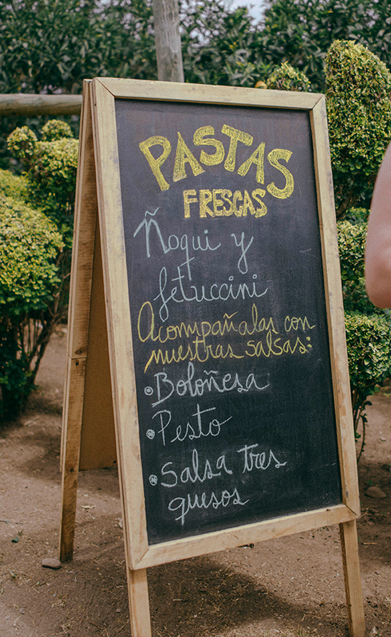 PASTAS
FRESCAS
Ñoqui y
fetuccini
Acompañalas con
nuestras salsas:
• Boloñesa
• Pesto
• Salsa tres
quesos